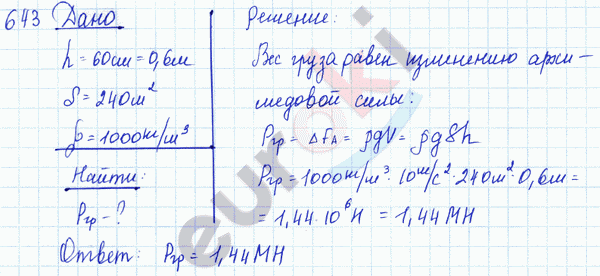 643 Дано
h = 60см = 0,6м
S = 240м²
ρ = 1000кг/м³
Найти:
Pгр - ?
Решение:
Вес груза равен изменению архи-
медовой силы:
Pгр = ΔFA = ρgV = ρgSh
Pгр = 1000кг/м³ · 10м/с² · 240м² · 0,6м =
= 1,44 · 10⁶Н = 1,44МН
Ответ: Pгр = 1,44МН
euroki